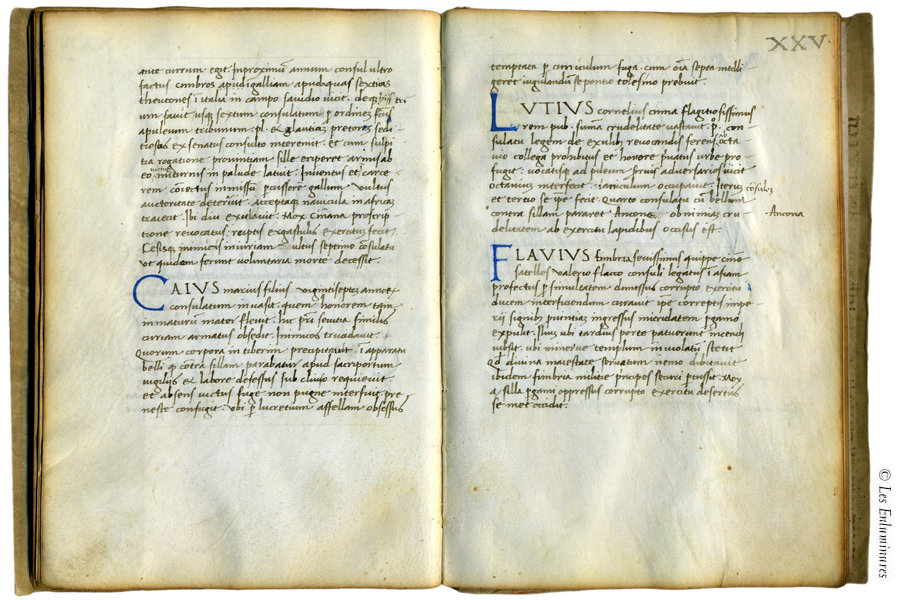 ante currum egit. Inproximũ annum consul ultro
factus cimbros apud galliam apud aquas sextias
theutones i italia in campo saudio uicit. 
um fauit usq; sextum consulatum ordines 
apuleum tribunum pl. et glautiã pretorẽ sedi
tiosos ex senatus consulto interemit. et cum sulpi
tia rogatione prouintiam sille eriperet armis ab
eo minturnis in palude latuit. Inuentus et carce
rem coniectus inmissũ pcussore gallum uultus
auctoritate deteruit. acceptaq; nauicula in africaz
traiecit. Ibi diu exulauit. Mox cinnana proscrip
tione reuocatus. ruptis ex gastulis exercitũ fecit.
Cesisq; inimicis iniuriam ultus septimo cõsulatu
ut quidem ferunt uoluntaria morte decessit.
CAIUS marcius filius uigintiseptẽ annoꝝ
consulatum inuasit. quem honorem tam
inmaturum mater fleuit. hic pri seuitia similis
curiam armatus obsedit. Inimicos trucidauit.
Quorum corpora in tiberim precipitauit. i apparatu
belli q contra sillam parabatur apud sacriportum
uigiliis et labore defessus sub cliuio requieuit.
et absens uictus fuge non pugne interfuit. pre
neste confugit. ubi p lucretium assellam obsessus
XXV.
temptata p cuniculum fuga. cum oia septa intelli
geret iugulandũ se pontio tolesino prebuit.
LUTIUS cornelius cinna flagitiosissimus
rem pub. sũma crudelitate uastauit. p. con
sulatu legem de exulib reuocandis ferens ab octa
uio collega prohibitus et honore priuatus urbe pro
fugit. uocatisq; ad pileum seruis aduersarios uicit
octauiũ interfecit. ianiculum occupauit. Iterũ cõsulẽ
et tertio se ipe fecit. Quarto consulatu cũ bellum
contra sillam pararet Ancone ob nimiaz cru
delitatem ab exercitu lapidibus occisus est.
Ancona
FLAVIUS fimbria seuissimus quippe cinne
satelles ualerio flacco consuli legatus i asiam
profectus p simultatem dimissus corrupto exercitu
ducem interficiendum curauit. ipe correptis impe
rii signis puintiaz ingressus mitridatem pgamo
expulit. Iliuz ubi tardius porte patuerunt incendi
iussit. ubi minerue templum inuiolatũ stetit
Qd diuina maiestate seruatum nemo dubitauit
ibidem fimbria militie principes securi pcussit. Mox
a silla pgami oppressus corrupto exercitu desertus
se met occidit.
© Les Enluminures